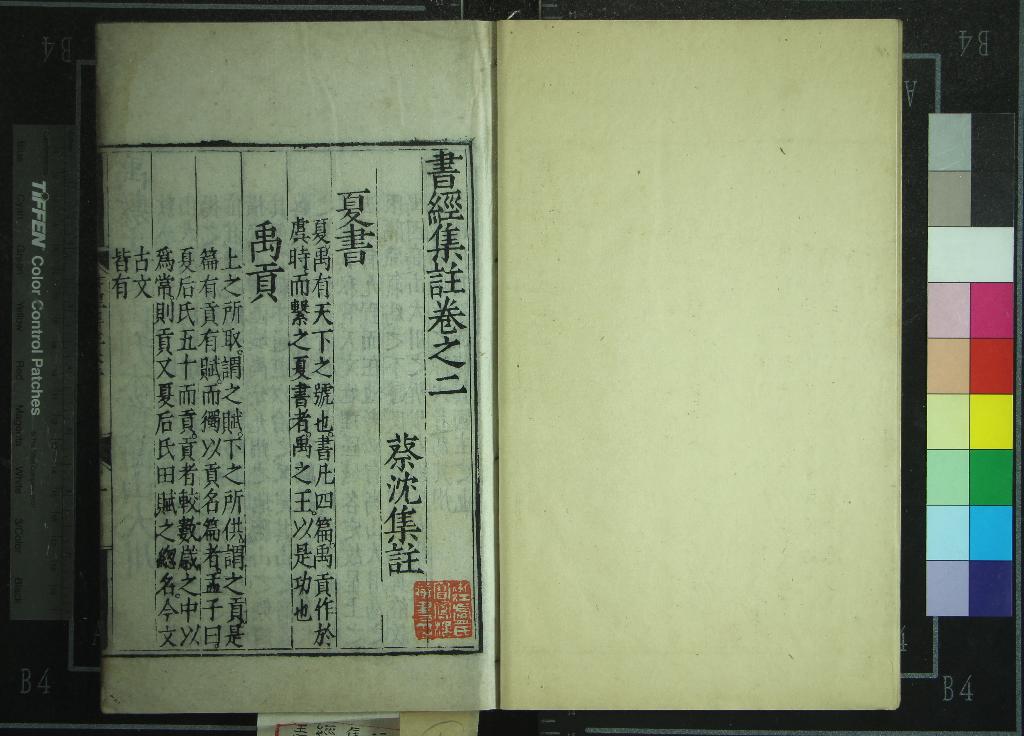 書經集註卷之二
蔡沈集註
夏書
夏禹有天下之號也書凡四篇禹貢作於
虞時而繫之夏書者禹之王以是功也
禹貢
上之所取謂之賦下之所供謂之貢是
篇有貢有賦而獨以貢名篇者孟子曰
夏后氏五十而貢貢者較數歲之中以
爲常則貢又夏后氏田賦之總名今文
古文
皆有
TIFFEN Color Control Patches
B4
B4
B4
B4
A